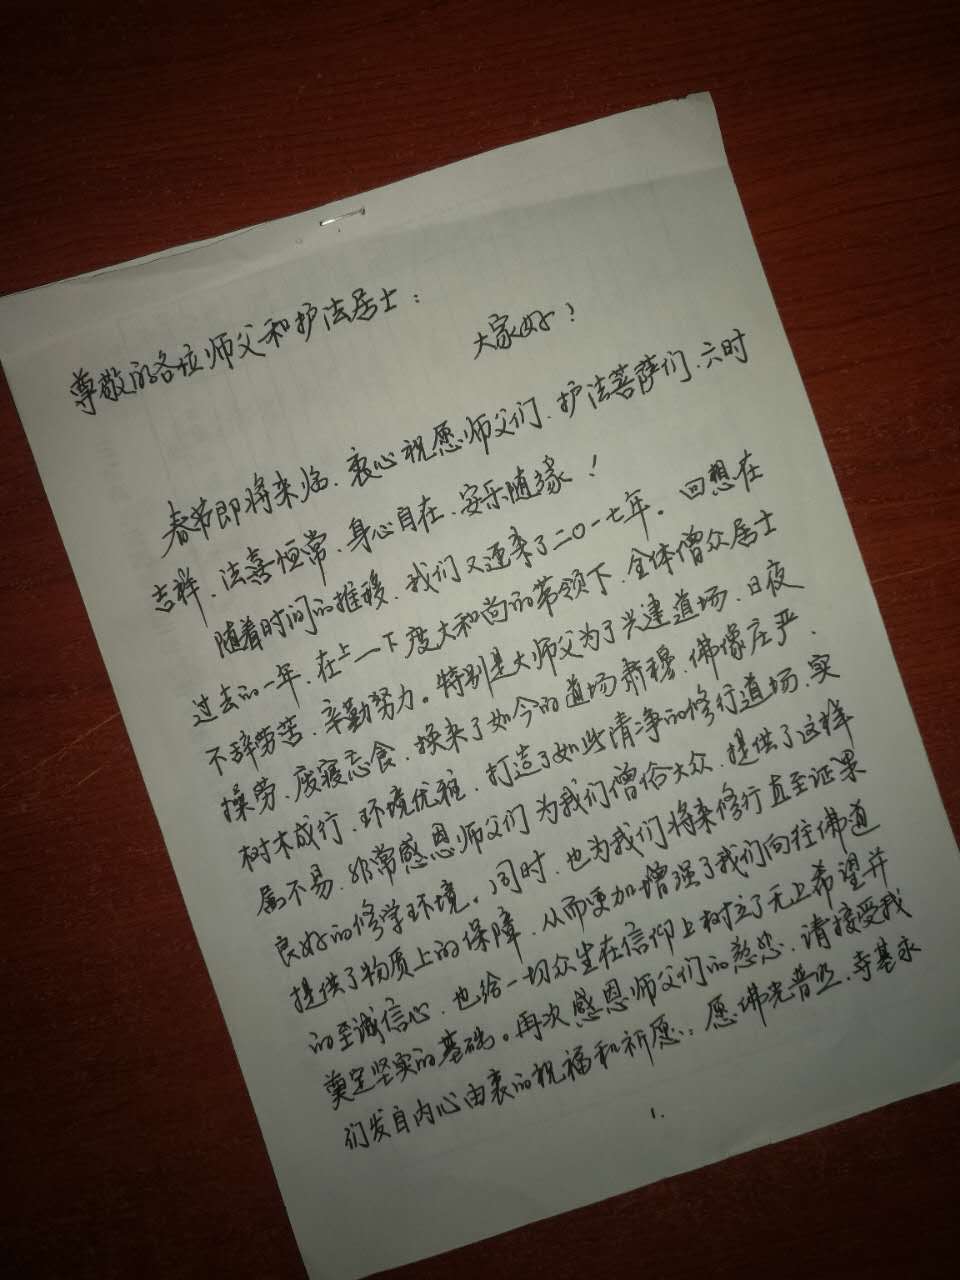 尊敬的各位师父和护法居士：
大家好！
春节即将来临、衷心祝愿师父们、护法菩萨们、六时
吉祥、法喜恒常、身心自在、安乐随缘！
随着时间的推移、我们又迎来了二〇一七年。回想在
过去的一年、在上一下度大和尚的带领下、全体僧众居士
不辞劳苦、辛勤努力。特别是大师父为了兴建道场、日夜
操劳、废寝忘食、换来了如今的道场肃穆、佛像庄严、
树木成行、环境优雅、打造了如此清净的修行道场、实
属不易、非常感恩师父们为我们僧俗大众、提供了这样
良好的修学环境。同时、也为我们将来修行直至证果
提供了物质上的保障、从而更加增强了我们向往佛道
的至诚信心、也给一切众生在信仰上树立了无上希望并
奠定坚实的基础。再次感恩师父们的慈悲、请接受我
们发自内心由衷的祝福和祈愿：愿佛光普照、寺基永
1.